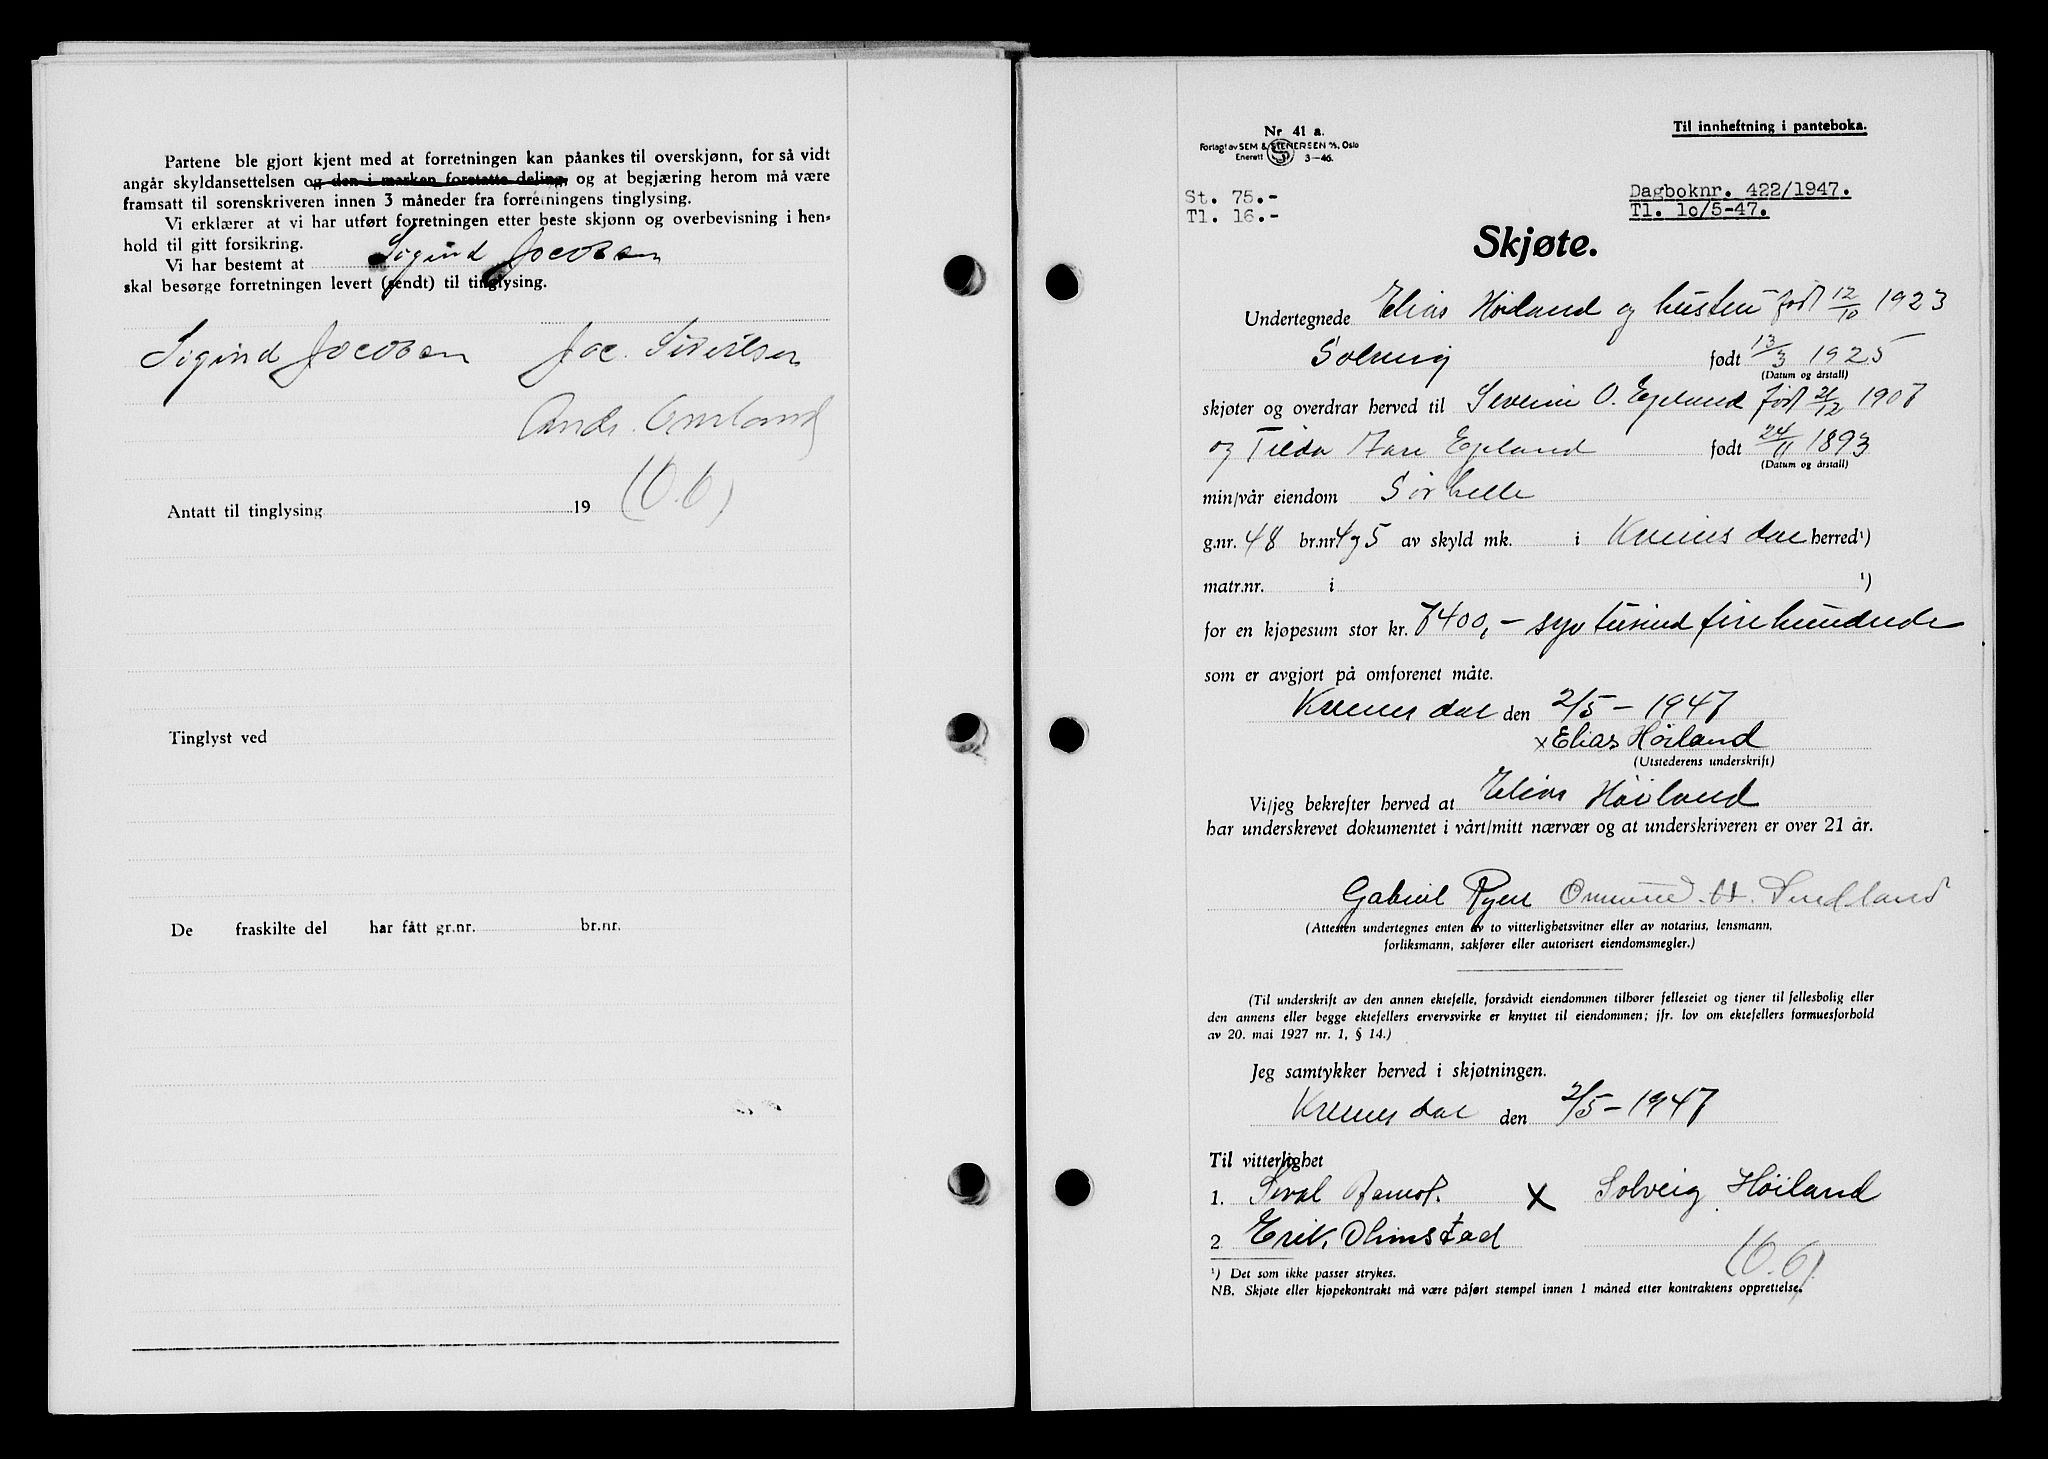 Partene ble gjort kjent med at forretningen kan påankes til overskjønn, for så vidt
angår skyldansettelsen og den i marken foretatte deling, og at begjæring herom må være
framsatt til sorenskriveren innen 3 måneder fra forretningens tinglysing.
Vi erklærer at vi har utført forretningen etter beste skjønn og overbevisning i hen-
hold til gitt forsikring.
Vi har bestemt at Sigurd Jacobsen
skal besørge forretningen levert (sendt) til tinglysing.
Sigurd Jacobsen Joc.
Andr. Omland
Antatt til tinglysing 19 (O.6)
Tinglyst ved
De fraskilte del har fått gr.nr. br.nr.
Til innheftning i panteboka.
Nr 41 a.
Forlagt av SEM & STENERSEN A/S, Oslo
Enerett 3-46.
St. 75.-
Tl. 16.-
Dagboknr. 422/1947.
Tl. 1o/5-47.
Skjøte.
Undertegnede Elias Høiland og hustru født 12/10 1923
Solveig født 13/3 1925
(Datum og årstall)
skjøter og overdrar herved til Severin O. Egeland født 21/12 1907
og Tilda Egeland født 24/11 1893
(Datum og årstall)
min/vår eiendom Sørhelle
g.nr. 48 br.nr 4 og 5 av skyld mk. i Kvinesdal herred ¹)
matr.nr. i ¹)
for en kjøpesum stor kr. 7400,- syv tusind fire hundrede
som er avgjort på omforenet måte.
Kvinesdal den 2/5-1947
x Elias Høiland
(Utstederens underskrift)
Vi/jeg bekrefter herved at Elias Høiland
har underskrevet dokumentet i vårt/mitt nærvær og at underskriveren er over 21 år.
Gabriel Omund H. Sindland
(Attesten undertegnes enten av to vitterlighetsvitner eller av notarius, lensmann,
forliksmann, sakfører eller autorisert eiendomsmegler.)
(Til underskrift av den annen ektefelle, forsåvidt eiendommen tilhører felleseiet og tjener til fellesbolig eller
den annens eller begge ektefellers ervervsvirke er knyttet til eiendommen; jfr. lov om ektefellers formuesforhold
av 20. mai 1927 nr. 1, § 14.)
Jeg samtykker herved i skjøtningen.
Kvinesdal den 2/5-1947
Til vitterlighet
1. x Solveig Høiland
2 Erik Olimstad
(O.6)
¹) Det som ikke passer strykes.
NB. Skjøte eller kjøpekontrakt må være påført stempel innen 1 måned etter kontraktens opprettelse.